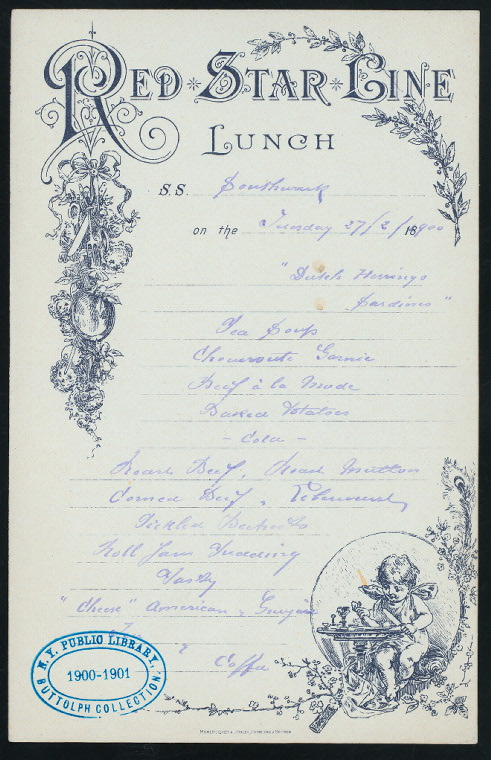 Red Star Line
Lunch
S.S. Southwark
on the Tuesday 27/2/1900
"Dutch Herrings
Sardines"
Pea Soup
Choucroute Garnie
Beef à la Mode
Baked Potatoes
- Cold -
Roast Beef, Roast Mutton
Corned Beef,
Pickled Beetroots
Roll Jam Pudding
Pastry
"Cheese" American, Gruyère
Coffee
N.Y. PUBLIC LIBRARY,
1900-1901
BUTTOLPH COLLECTION.